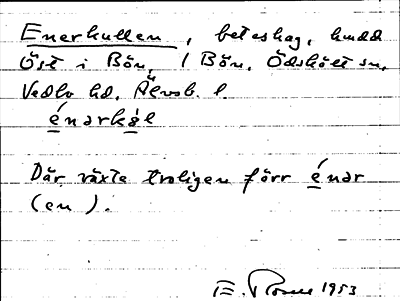 Enerkullen, beteshag,
Öst i Bön, 1 Bön, Ödskölt sn,
Vedbo hd, Älvsb. l.
énarkál
Där växte troligen förr énar
(en).
E. 1953